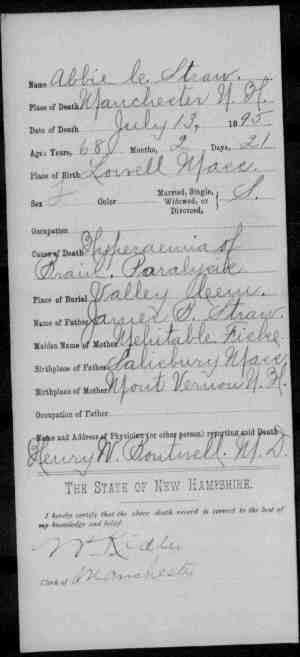 Name Abbie C. Straw.
Place of Death Manchester N. H.
Date of Death July 13, 1895
Age: Years, 68 Months, 2 Days, 21
Place of Birth Lowell Mass.
Sex F Color Married, Single, Widowed, or Divorced, } S.
Occupation
Cause of Death Hyperaemia of
Brain. Paralysis
Place of Burial Valley Cem.
Name of Father James S. Straw.
Maiden Name of Mother Mehitable Fiske
Birthplace of Father Salisbury Mass
Birthplace of Mother Mont Vernon N. H.
Occupation of Father
Name and Address of Physician (or other person) reporting said Death
Henry W. Boutwell. M.D.
THE STATE OF NEW HAMPSHIRE.
I hereby certify that the above death record is correct to the best of
my knowledge and belief.
Clerk of Manchester